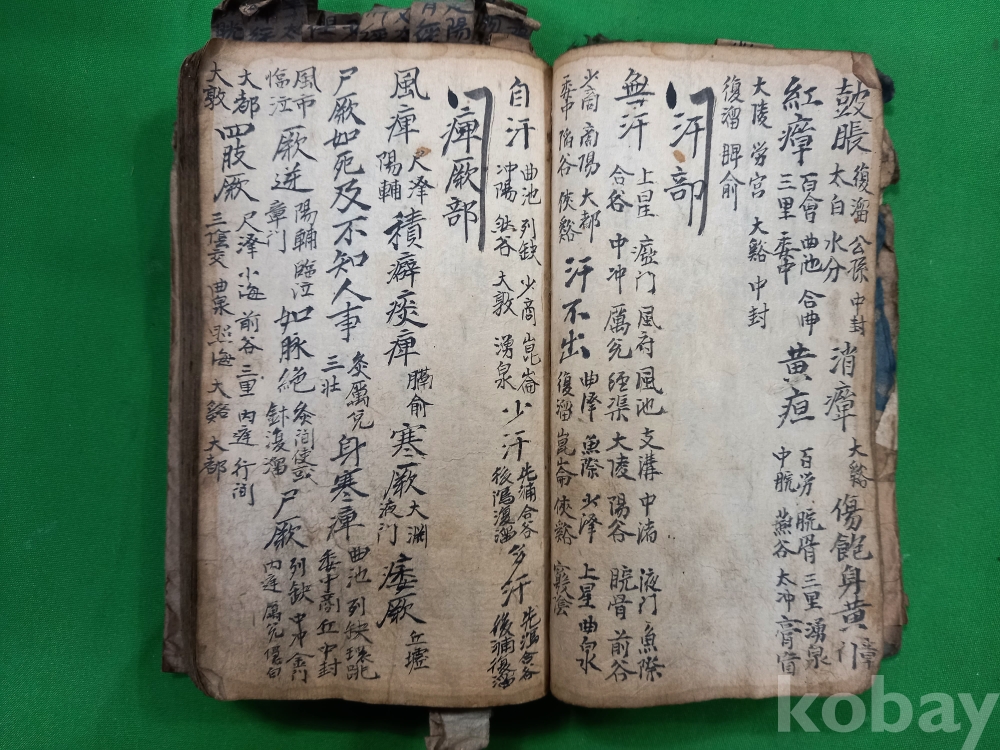 鼓脹 復溜 公孫 中封 太白 水分 消癉 大谿 傷飽身黃 章門
紅瘴 百會 曲池 合曲 三里 委中 黃疸 百労 腕骨 三里 湧泉 中脘 燕谷 太冲 膏肓
大陵 労宮 大谿 中封
復溜 脾俞
汗部
無汗 上星 瘂門 風府 風池 支溝 中渚 液門 魚際 合谷 中冲 厲兌 経渠 大陵 陽谷 腕骨 前谷
少商 商陽 大都 委中 陷谷 俠谿 汗不出 曲澤 魚際 少澤 上星 曲泉 復溜 崑崙 俠谿 竅陰
自汗 曲池 列缺 少商 崑崙 冲陽 然谷 大敦 湧泉 少汗 先補合谷 後瀉復溜 多汗 先瀉合谷 後補復溜
痺厥部
風痺 尺澤 陽輔 積癖痰痺 膈俞 寒厥 大淵 液門 痿厥 丘墟
尸厥如死及不知人事 灸厲兌 三壯 身寒痺 曲池 列缺 環跳 委中 商丘 中封
風市 臨泣 厥逆 陽輔 臨泣 章門 如脉絕 灸間使 針復溜 尸厥 列缺 中冲 金門 內庭 厲兌 隱白
大都 四肢厥 尺澤 小海 前谷 三里 內庭 行間
大敦 三陰交 曲泉 照海 大谿 大都
kobay